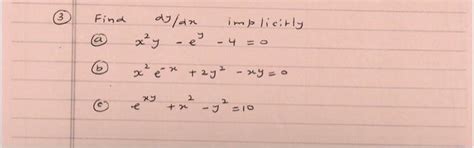 ③ Find dy/dx implicitly
ⓐ x²y - e^y - 4 = 0
ⓑ x²e^-x + 2y² - xy = 0
ⓒ e^xy + x² - y² = 10